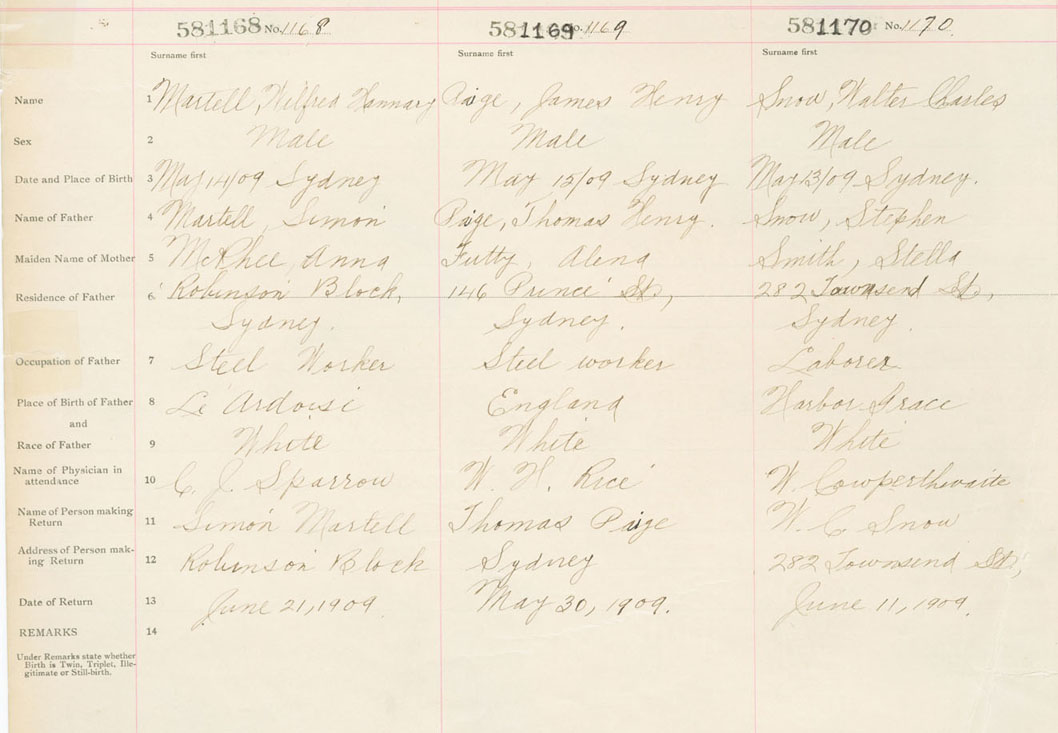 581168 No. 1168 581169 No. 1169 581170 No. 1170
Surname first Surname first Surname first
Name 1 Martell, Wilfred Paige, James Henry Snow, Walter Charles
Sex 2 Male Male Male
Date and Place of Birth 3 May 14/09 Sydney May 15/09 Sydney May 13/09 Sydney.
Name of Father 4 Martell, Simon Paige, Thomas Henry. Snow, Stephen
Maiden Name of Mother 5 McPhee, Anna Futty, Alena Smith, Stella
Residence of Father 6 Robinson Block, 146 Prince St, 282 Townsend St,
Sydney. Sydney. Sydney.
Occupation of Father 7 Steel Worker Steel worker Laborer
Place of Birth of Father 8 Le Ardoise England Harbor Grace
and
Race of Father 9 White White White
Name of Physician in
attendance 10 C. J. Sparrow W. H. Rice W. Cowperthwaite
Name of Person making
Return 11 Simon Martell Thomas Paige W. C Snow
Address of Person mak-
ing Return 12 Robinson Block Sydney 282 Townsend St,
Date of Return 13 June 21, 1909 May 30, 1909. June 11, 1909.
REMARKS 14
Under Remarks state whether
Birth is Twin, Triplet, Ille-
gitimate or Still-birth.